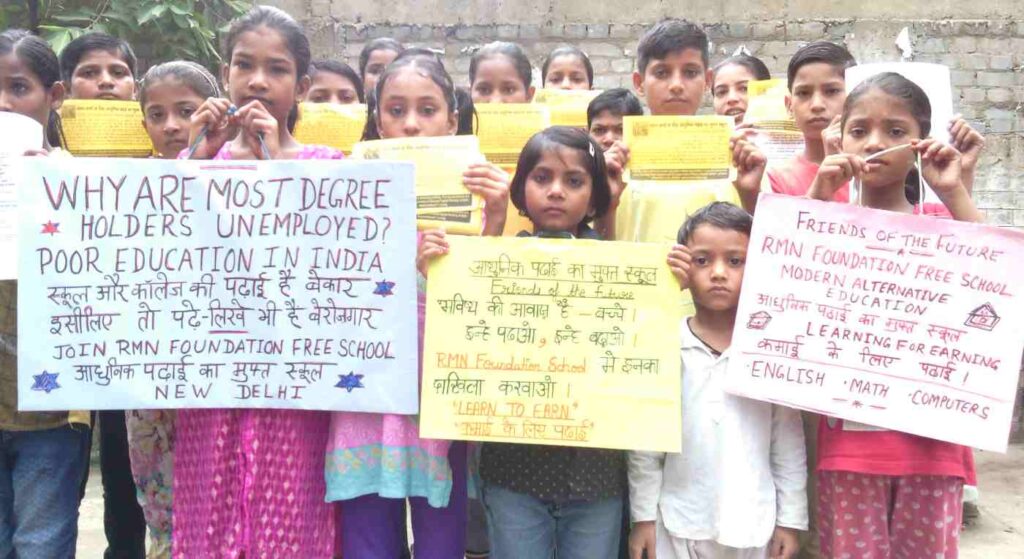 WHY ARE MOST DEGREE
HOLDERS UNEMPLOYED?
POOR EDUCATION IN INDIA
स्कूल और कॉलेज की पढ़ाई है बेकार
इसीलिए तो पढ़े-लिखे भी है बेरोजगार
JOIN RMN FOUNDATION FREE SCHOOL
आधुनिक पढ़ाई का मुफ्त स्कूल
NEW DELHI
आधुनिक पढ़ाई का मुफ्त स्कूल
Friends of the Future
भविष्य की आवाज़ है - बच्चे।
इन्हे पढाओ, इन्हे बढ़ाओ।
RMN Foundation School मे इनका
दाखिला करवाओ।
"LEARN TO EARN"
"कमाई के लिए पढ़ाई"
FRIENDS OF THE FUTURE
RMN FOUNDATION FREE SCHOOL
MODERN ALTERNATIVE
EDUCATION
आधुनिक पढ़ाई का मुफ्त स्कूल
LEARNING FOR EARNING
कमाई के लिए पढ़ाई।
ENGLISH · MATH · COMPUTERS